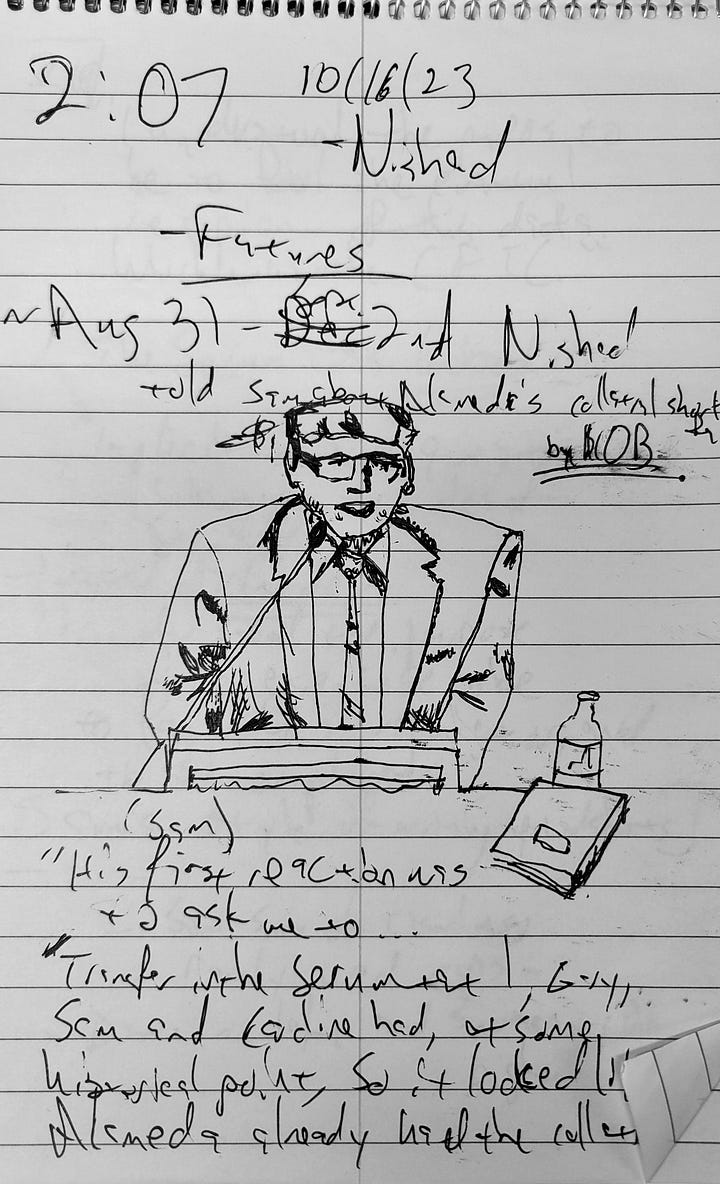 2:07 10/16/23
- Nishad
- Futures
~ Aug 31 - Sept. 2nd Nishad
told Sam about Alameda's collateral short
by 10B
(Sam)
"His first reaction was
to ask me to...
"Transfer in the Serum that I, Gary,
Sam and Caroline had, at some
historical point, so it looked li
Alameda already had the collat